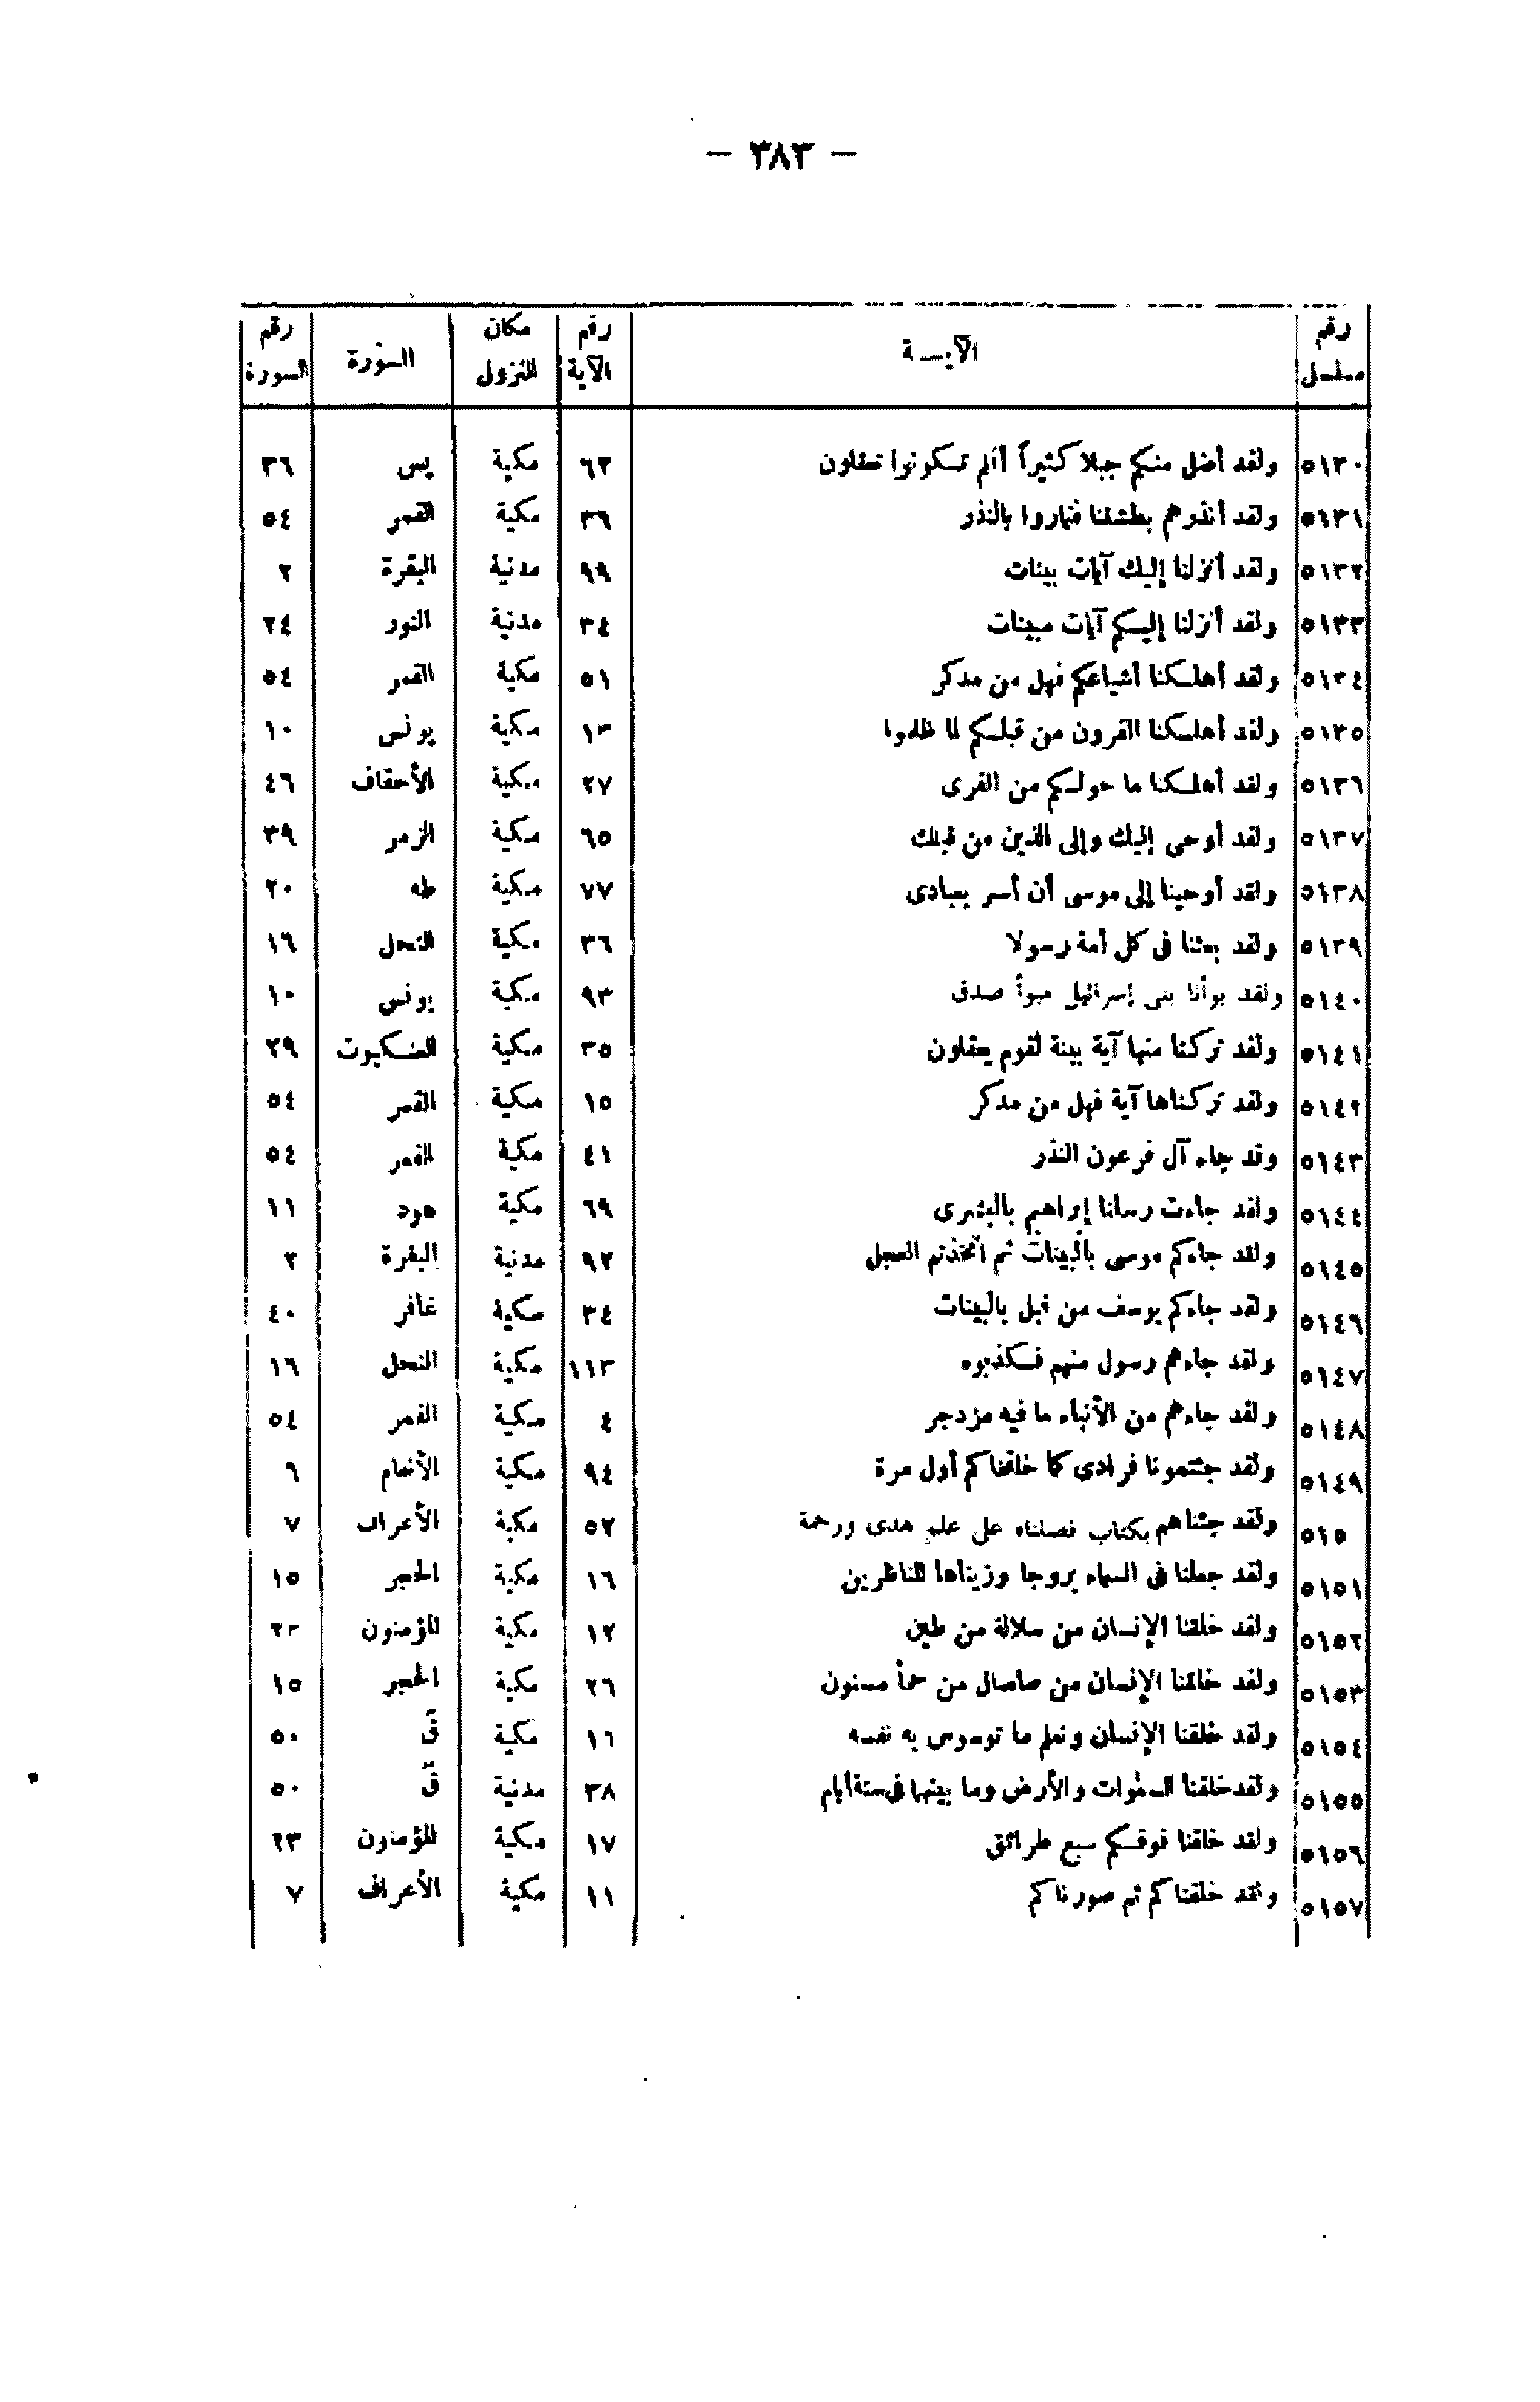 — ٣٨٣ —
رقم مسلسل | الآيـــة | رقم الآية | مكان النزول | السورة | رقم السورة
٥١٣٠ ولقد أضل منكم جبلا كثيراً أفلم تكونوا تعقلون ٦٢ مكية يس ٣٦
٥١٣١ ولقد أنذرهم بطشتنا فتماروا بالنذر ٣٦ مكية القمر ٥٤
٥١٣٢ ولقد أنزلنا إليك آيات بينات ٩٩ مدنية البقرة ٢
٥١٣٣ ولقد أنزلنا إليكم آيات مبينات ٣٤ مدنية النور ٢٤
٥١٣٤ ولقد أهلكنا أشياعكم فهل من مدكر ٥١ مكية القمر ٥٤
٥١٣٥ ولقد أهلكنا القرون من قبلكم لما ظلموا ١٣ مكية يونس ١٠
٥١٣٦ ولقد أهلكنا ما حولكم من القرى ٢٧ مكية الأحقاف ٤٦
٥١٣٧ ولقد أوحى إليك وإلى الذين من قبلك ٦٥ مكية الزمر ٣٩
٥١٣٨ ولقد أوحينا إلى موسى أن أسر بعبادى ٧٧ مكية طه ٢٠
٥١٣٩ ولقد بعثنا فى كل أمة رسولا ٣٦ مكية النحل ١٦
٥١٤٠ ولقد بوأنا بنى إسرائيل مبوأ صدق ٩٣ مكية يونس ١٠
٥١٤١ ولقد تركنا منها آية بينة لقوم يعقلون ٣٥ مكية العنكبوت ٢٩
٥١٤٢ ولقد تركناها آية فهل من مدكر ١٥ مكية القمر ٥٤
٥١٤٣ وقد جاء آل فرعون النذر ٤١ مكية القمر ٥٤
٥١٤٤ ولقد جاءت رسلنا إبراهيم بالبشرى ٦٩ مكية هود ١١
٥١٤٥ ولقد جاءكم موسى بالبينات ثم اتخذتم العجل ٩٢ مدنية البقرة ٢
٥١٤٦ ولقد جاءكم يوسف من قبل بالبينات ٣٤ مكية غافر ٤٠
٥١٤٧ ولقد جاءهم رسول منهم فكذبوه ١١٣ مكية النحل ١٦
٥١٤٨ ولقد جاءهم من الأنباء ما فيه مزدجر ٤ مكية القمر ٥٤
٥١٤٩ ولقد جئتمونا فرادى كما خلقناكم أول مرة ٩٤ مكية الأنعام ٦
٥١٥ ولقد جئناهم بكتاب فصلناه على علم هدى ورحمة ٥٢ مكية الأعراف ٧
٥١٥١ ولقد جعلنا فى السماء بروجا وزيناها للناظرين ١٦ مكية الحجر ١٥
٥١٥٢ ولقد خلقنا الإنسان من سلالة من طين ١٢ مكية المؤمنون ٢٣
٥١٥٣ ولقد خلقنا الإنسان من صلصال من حمأ مسنون ٢٦ مكية الحجر ١٥
٥١٥٤ ولقد خلقنا الإنسان ونعلم ما توسوس به نفسه ١٦ مكية قۤ ٥٠
٥١٥٥ ولقد خلقنا السمٰوات والأرض وما بينهما فى ستة أيام ٣٨ مدنية قۤ ٥٠
٥١٥٦ ولقد خلقنا فوقكم سبع طرائق ١٧ مكية المؤمنون ٢٣
٥١٥٧ ولقد خلقناكم ثم صورناكم ١١ مكية الأعراف ٧